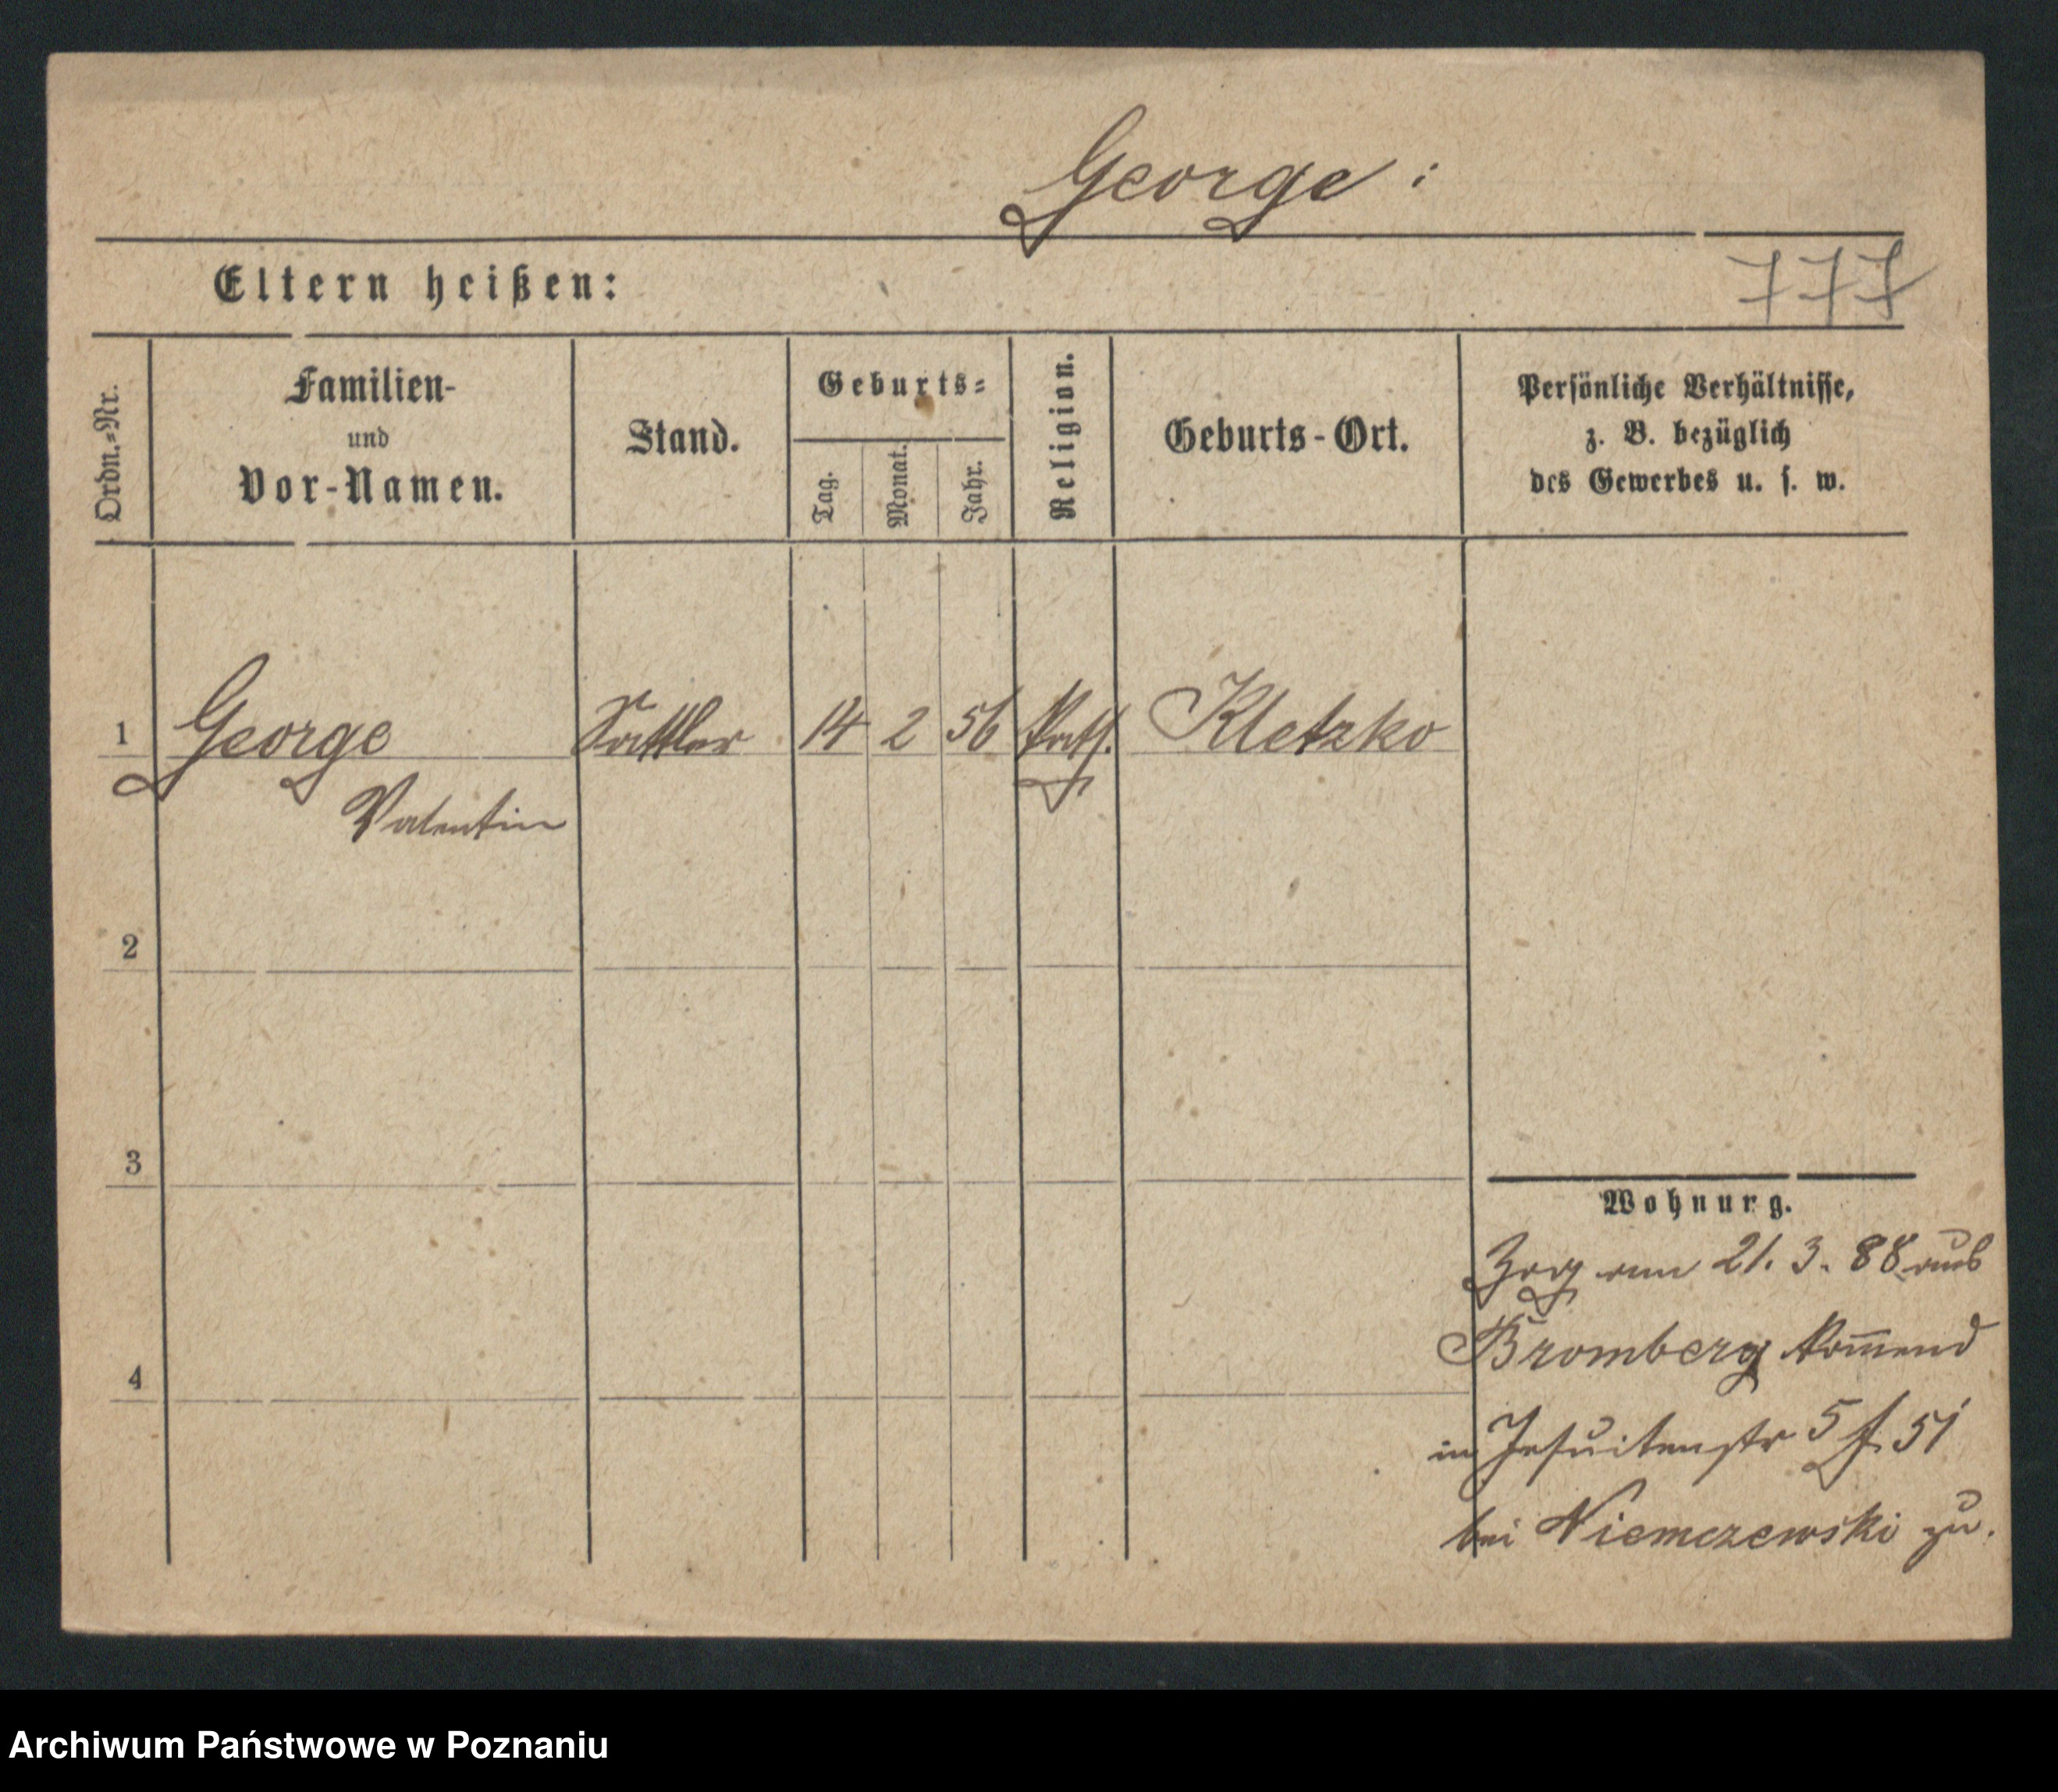 George:
Eltern heißen:
777
Ordn.=Nr.
Familien-
und
Vor-Namen.
Stand.
Geburts=
Tag.
Monat.
Jahr.
Religion.
Geburts-Ort.
Persönliche Verhältnisse,
z. B. bezüglich
des Gewerbes u. s. w.
1 George Sattler 14 2 56 Kath. Kletzko
Valentin
2
3
4
Wohnurg.
Zog am 21. 3. 88 aus
Bromberg kom̄end
in Jesuitenstr 5 f. 51
bei Niemczewski zu.
Archiwum Państwowe w Poznaniu